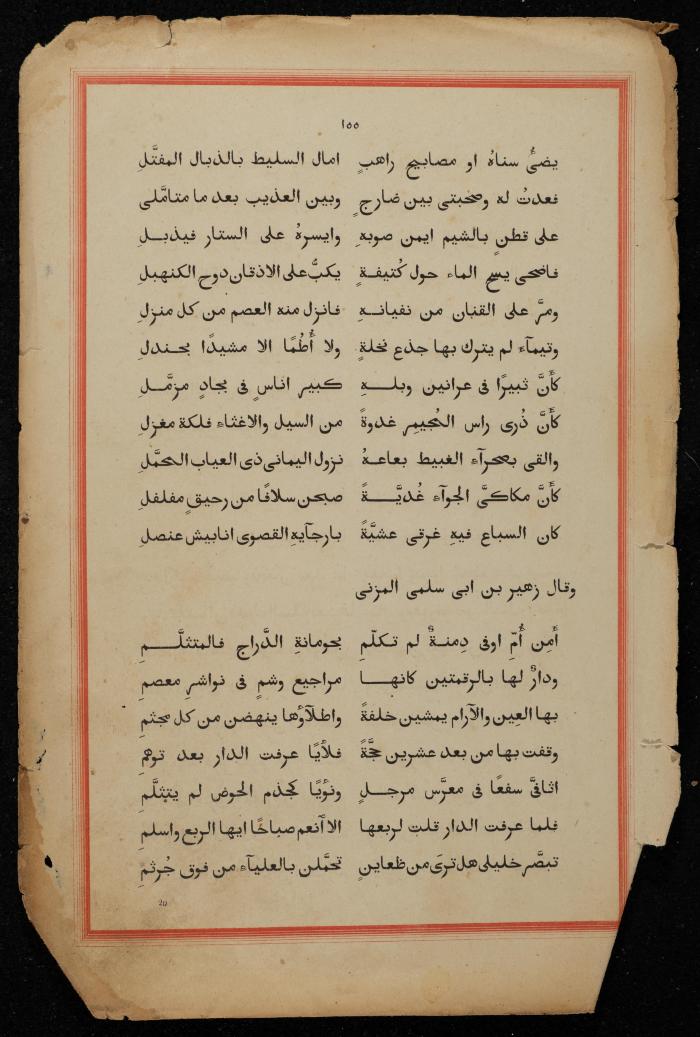 ١٥٥
يضئُ سناهُ او مصابيح راهبٍ امال السليط بالذبال المفتَّلِ
فعدتُ له وصحبتى بين ضارجٍ وبين العذيب بعد ما متامَّلى
على قطنٍ بالشيم ايمن صوبهِ وايسرهُ على الستار فيذبلِ
فاضحى يسح الماء حول كُتيفةٍ يكبُّ على الاذقان دوح الكنهبلِ
ومرَّ على القنان من نفيانهِ فانزل منه العصم من كل منزلِ
وتيمآء لم يترك بها جذع نخلةٍ ولا أُطُمًا الا مشيدًا بجندلِ
كأَنَّ ثبيرًا فى عرانين وبلهِ كبير اناسٍ فى بجادٍ مزمَّلِ
كأَنَّ ذُرى راس المُجيمِر غدوةً من السيل والاغثاء فلكة مغزلِ
والقى بصحرآء الغبيط بعاعهُ نزول اليمانى ذى العياب المحمَّلِ
كأَنَّ مكاكىَّ الجوآء غُديَّةً صبحن سلافًا من رحيقٍ مفلفلِ
كان السباع فيهِ غرقى عشيَّةً بارجآيهِ القصوى انابيش عنصلِ
وقال زهير بن ابى سلمى المزنى
أَمِن أُمِّ اوفى دِمنةٌ لم تكلّمِ بحومانةِ الدَّراج فالمتثلَّمِ
ودارٌ لها بالرقمتين كانها مراجيع وشمٍ فى نواشرِ معصمِ
بها العِين والآرام يمشين خلفةً واطلآؤها ينهضن من كل مجثمِ
وقفت بها من بعد عشرين حجَّةً فلأيًا عرفت الدار بعد توهمِ
اثافىَّ سفعًا فى معرَّس مرجلٍ ونؤيًا كجذم الحوض لم يتثلَّمِ
فلما عرفت الدار قلت لربعها الا أنعم صباحًا ايها الربع واسلمِ
تبصَّر خليلى هل ترىَ من ظعاينٍ تحمَّلن بالعليآء من فوق جُرثمِ
20